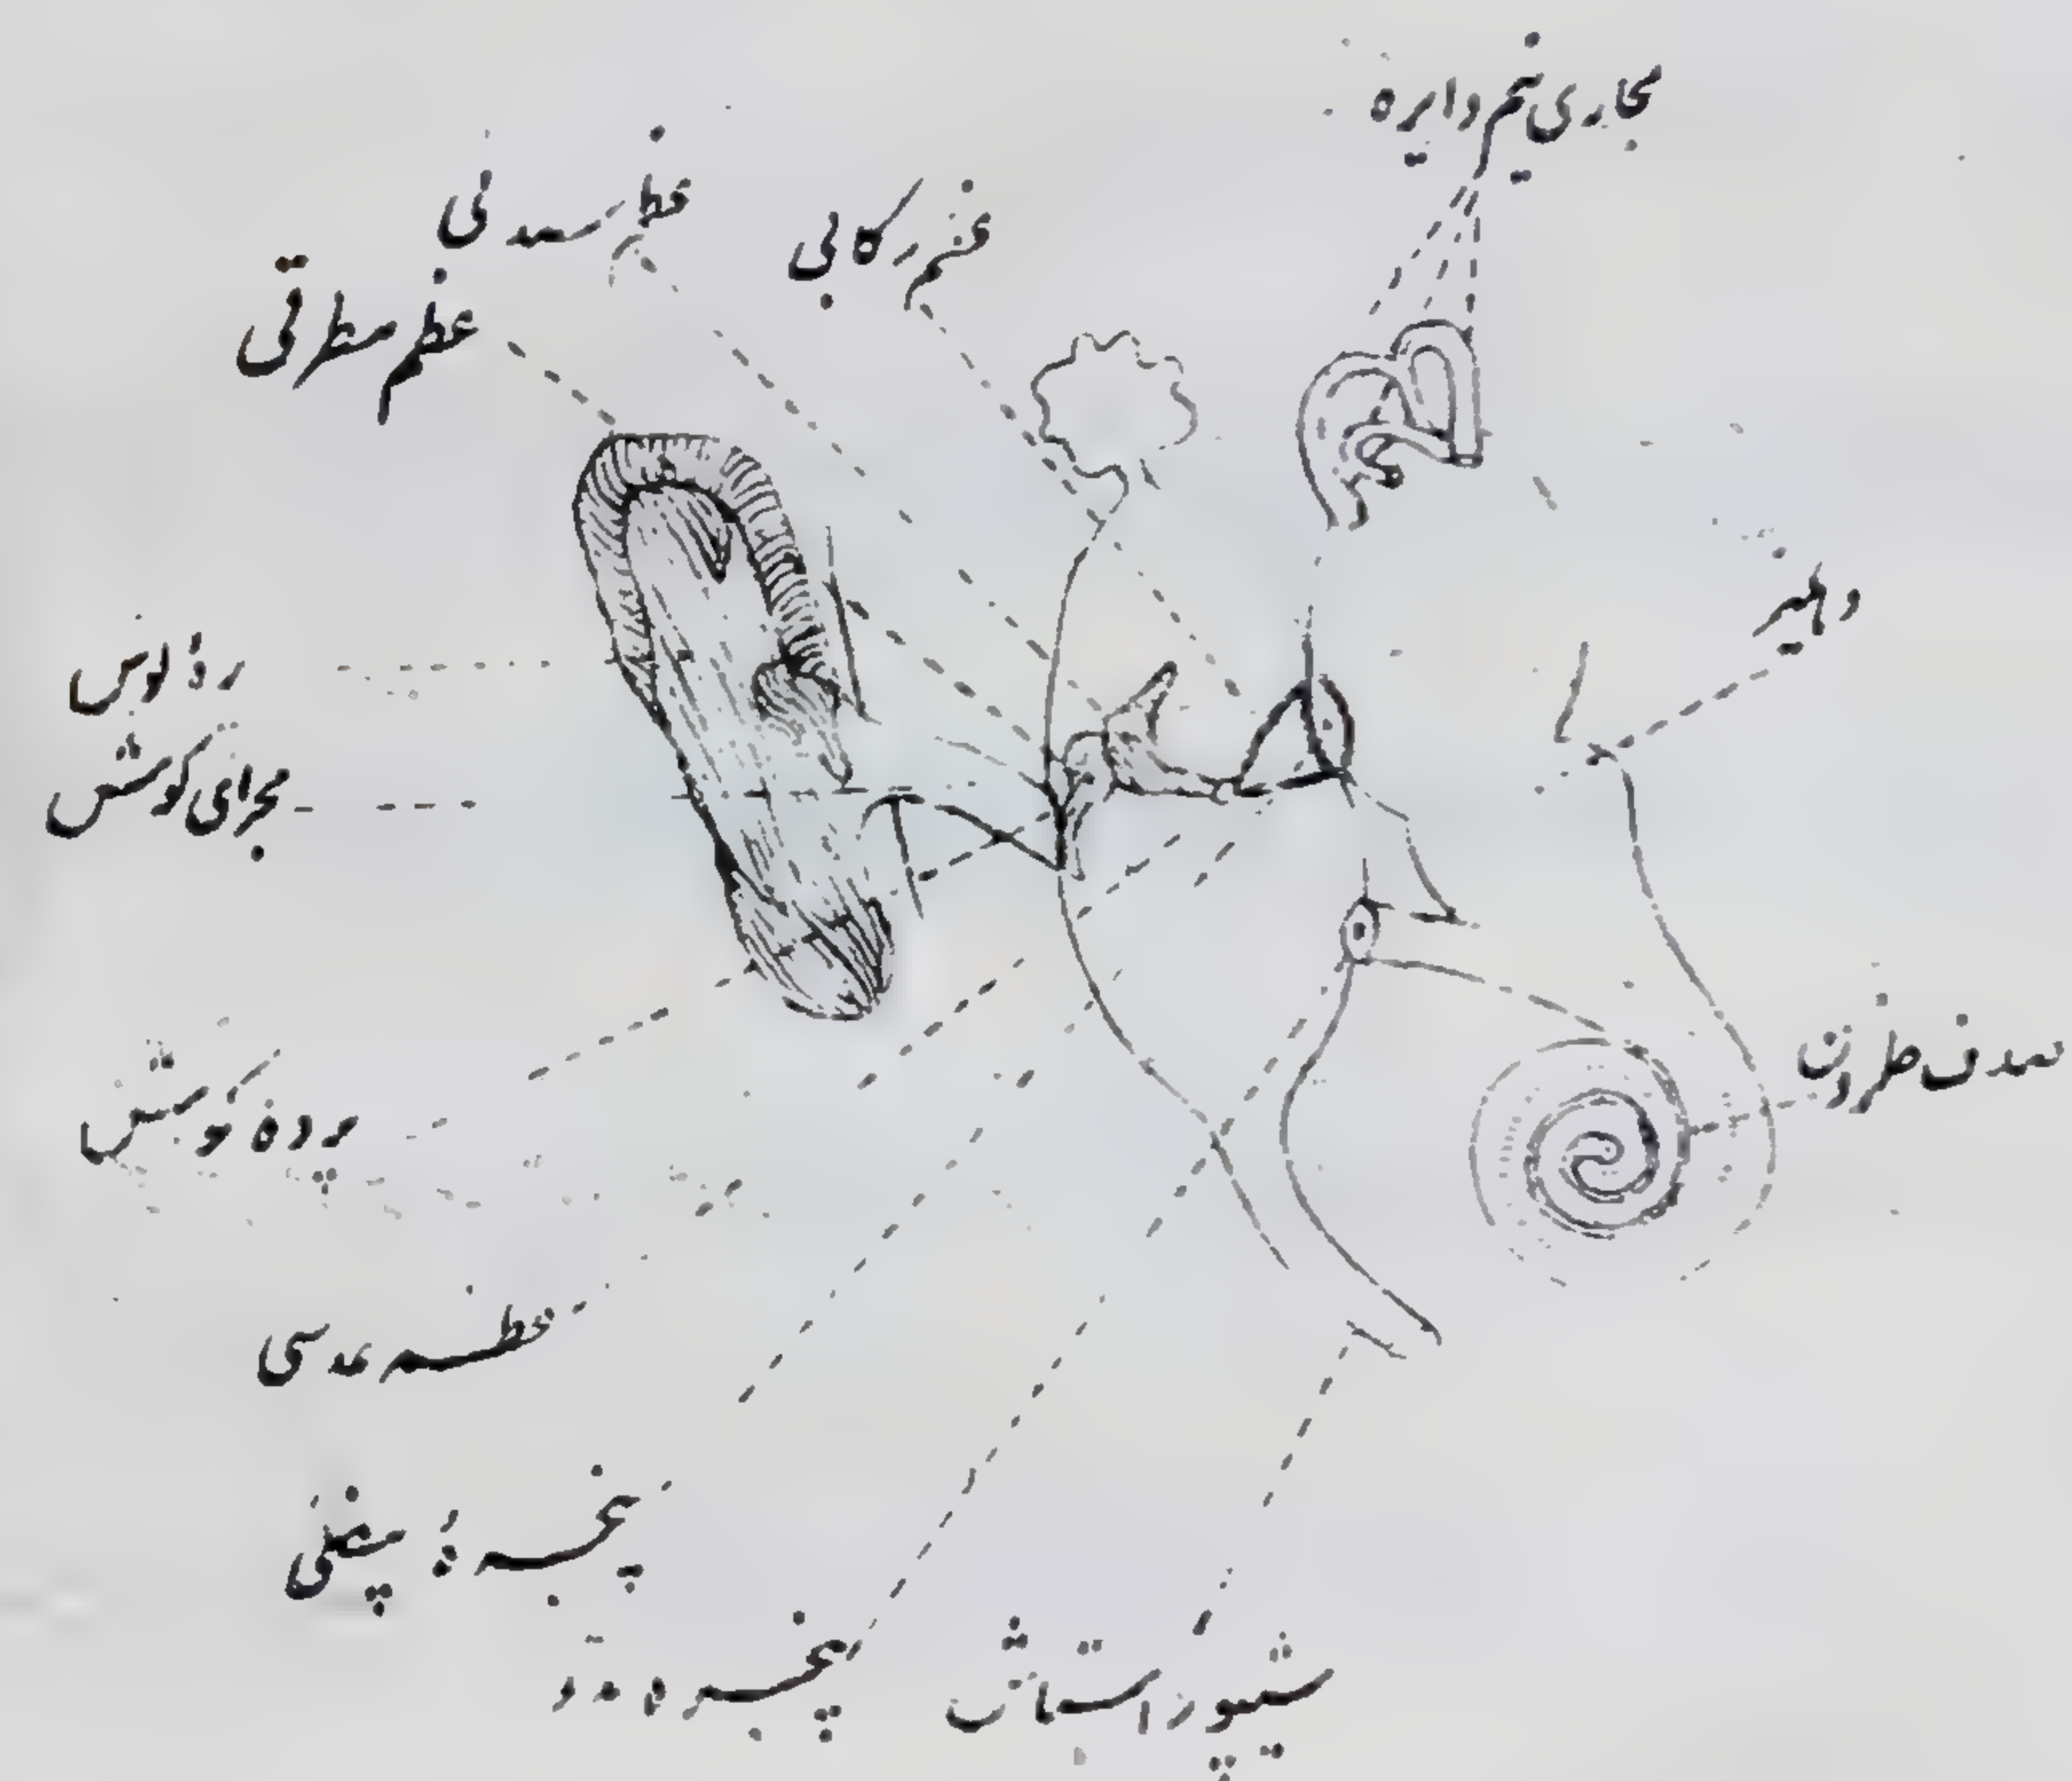 مجاری نیم دایره
عظم سندانی
عظم رکابی
عظم مطرقی
دهلیز
مجرای گوش
صدف حلزون
پرده گوش
عظم عدسی
پنجره بیضی
پنجره مدور
شیپور استاش